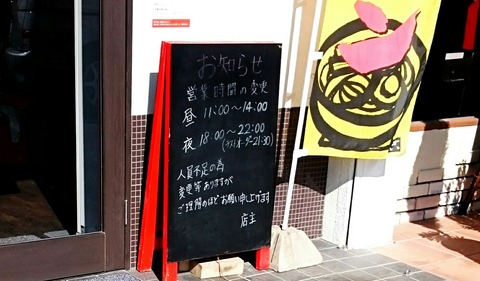 お知らせ
営業時間の変更
昼 11:00〜14:00
夜 18:00〜22:00
(ラストオーダー21:30)
人員不足の為
変更等ありますが
ご理解のほどお願い申し上げます
店主